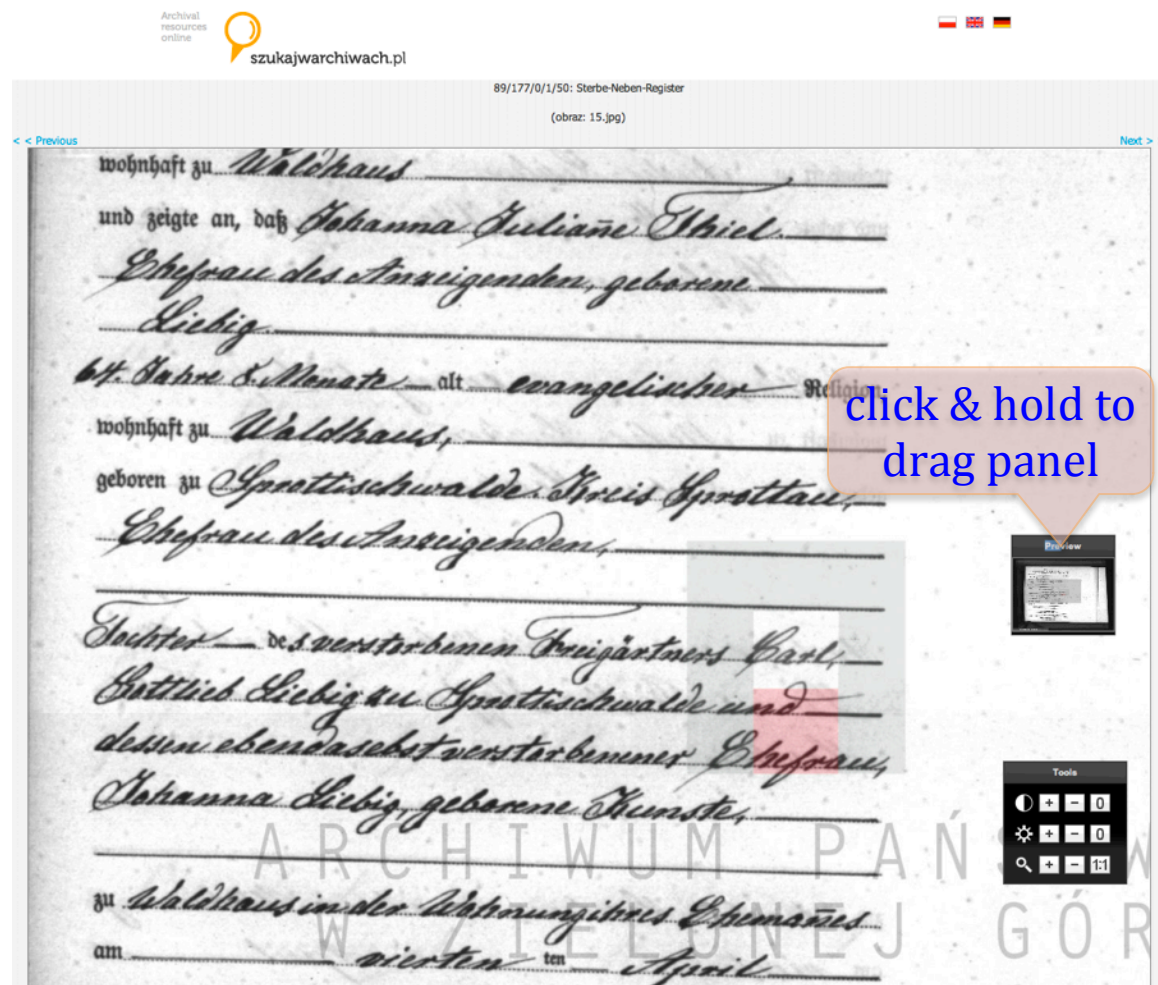 Archival
resources
online
szukajwarchiwach.pl
89/177/0/1/50: Sterbe-Neben-Register
(obraz: 15.jpg)
< < Previous
Next >
wohnhaft zu Waldhaus
und zeigte an, daß Johanna Juliane Thiel
Ehefrau des Anzeigenden, geborene
Liebig
64. Jahre 8. Monate alt evangelischer Religion
wohnhaft zu Waldhaus,
geboren zu Sprottischwalde Kreis Sprottau,
Ehefrau des Anzeigenden,
Tochter des verstorbenen Freigärtners Carl,
Gottlieb Liebig zu Sprottischwalde und
dessen ebendasebst verstorbenener Ehefrau,
Johanna Liebig, geborene Kunste,
zu Waldhaus in der Wohnung ihres Ehemañes
am vierten ten April
click & hold to
drag panel
Preview
Tools
+ − 0
+ − 0
+ − 1:1
ARCHIWUM PAŃSTW
W ZIELONEJ GÓR